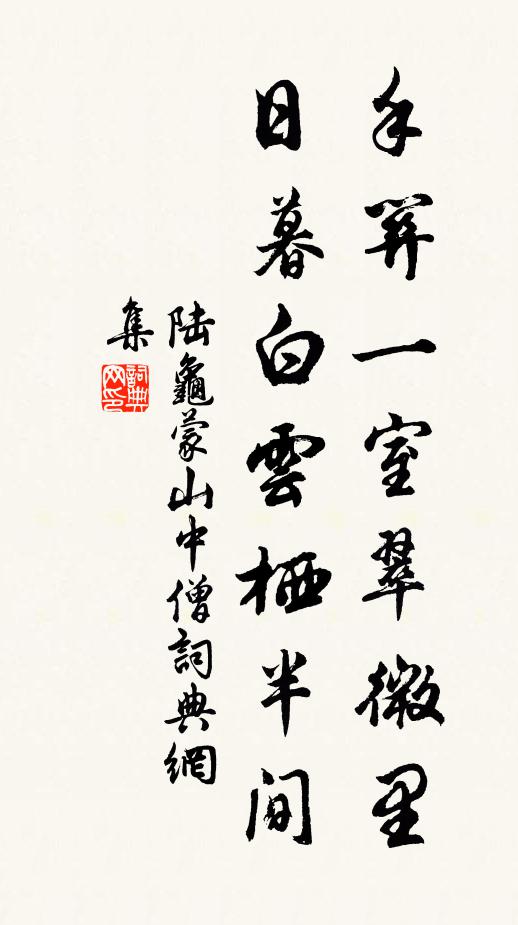 手關一室翠微里
日暮白雲栖半間
陸龜蒙山中僧詞典網
集
詞典
网印